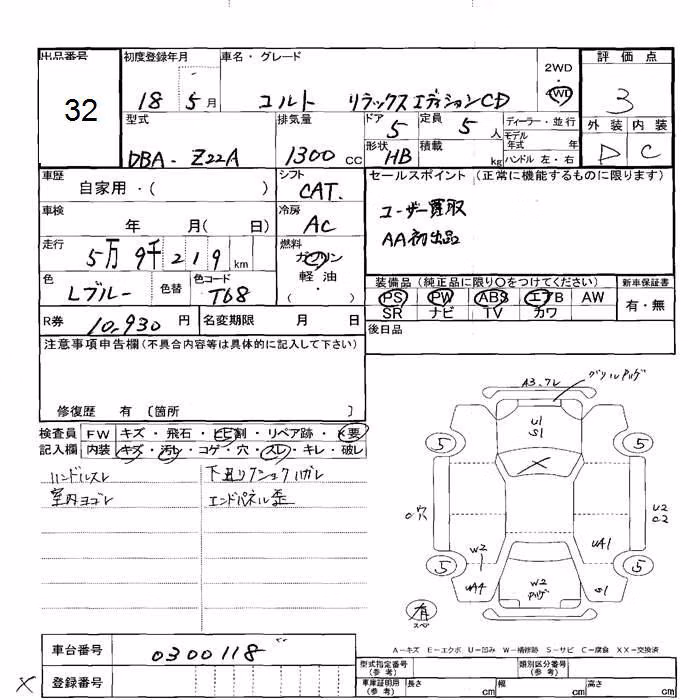 出品番号 初度登録年月 車名・グレード 2WD・4WD 評価点
32 18 5月 コルト リラックスエディションCD 3
型式 排気量 ドア 5 定員 5人 ディーラー・並行 外装 内装
DBA-Z22A 1300cc 形状 HB 積載 kg モデル年式 年 D C
ハンドル 左・右
車歴 シフト セールスポイント (正常に機能するものに限ります)
自家用・( ) CAT.
車検 冷房 ユーザー買取
年 月( 日) AC AA初出品
走行 燃料
5万9千219km ガソリン
軽油
・
( )
色 色替 色コード 装備品 (純正品に限り○をつけてください) 新車保証書
Lブルー T68 PS PW ABS エアB AW 有・無
SR ナビ TV カワ
R券 10,930円 名変期限 月 日 後日品
注意事項申告欄(不具合内容等は具体的に記入して下さい)
修復歴 有 〔箇所 〕
検査員 FW キズ・飛石・ヒビ割・リペア跡・X要
記入欄 内装 キズ・汚レ・コゲ・穴・スレ・キレ・破レ
ハンドルスレ
室内ヨゴレ
エンドパネル歪
A3.フレ
U1
S1
X
5 5
穴
U2
C2
W2
UA1
5 5
UA4
W2
S1
有
スペア
A-キズ E-エクボ U-凹み W-補修跡 S-サビ C-腐食 XX-交換済
車台番号 0300118
X 登録番号
型式指定番号(参考) 類別区分番号(参考)
車庫証明用(参考) 長さ cm 幅 cm 高さ cm